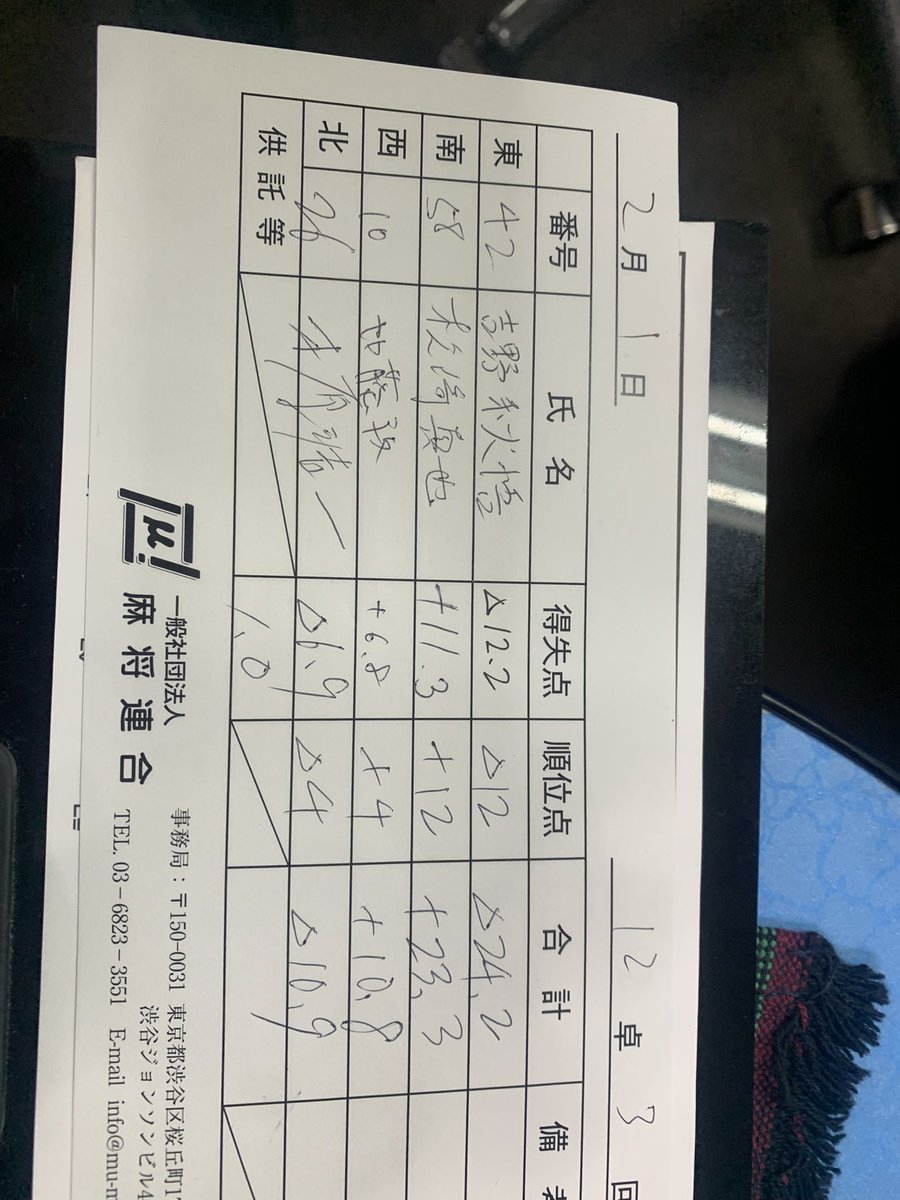 2月 1日 12卓 3回
番号 氏名 得失点 順位点 合計 備考
東 42 吉野秋悟 △12.2 △12 △24.2
南 58 松崎真也 +11.3 +12 +23.3
西 10 +6.8 +4 +10.8
北 26 △6.9 △4 △10.9
供託等 1.0
μ! 一般社団法人
麻将連合
事務局:〒150-0031 東京都渋谷区桜丘町1
渋谷ジョンソンビル4
TEL. 03-6823-3551 E-mail info@mu-m